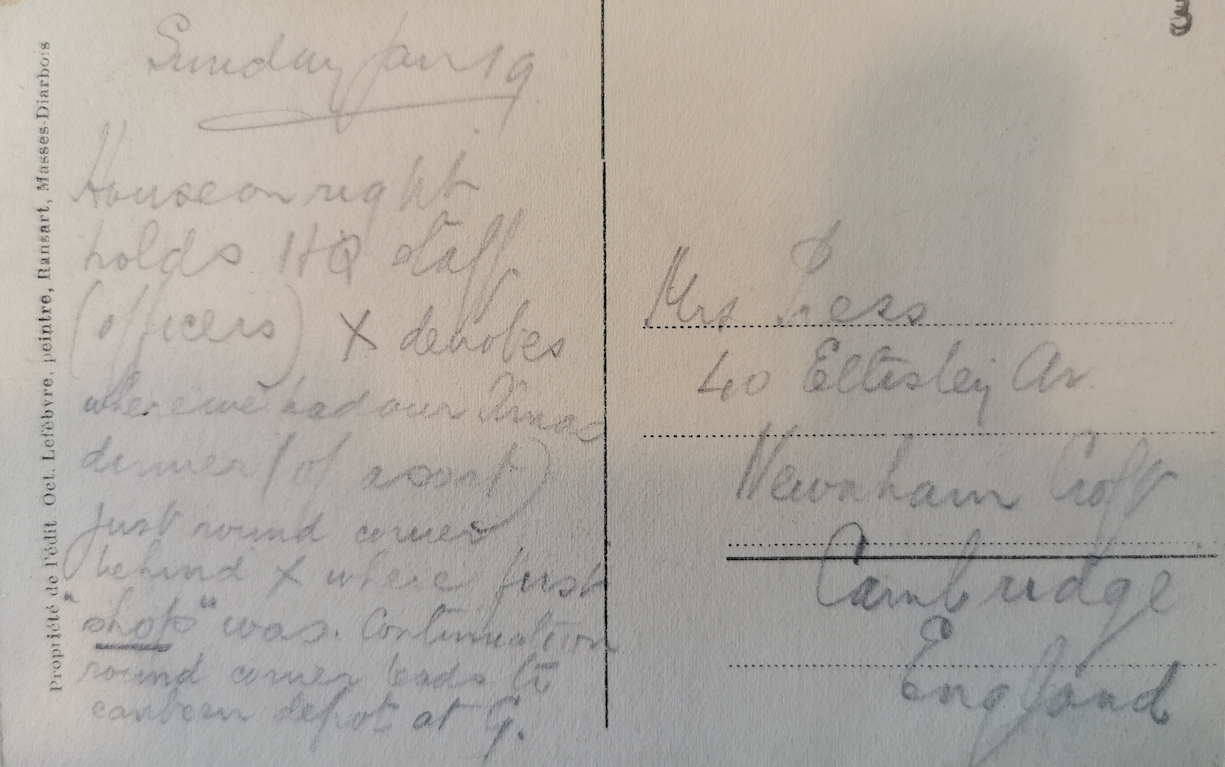 Sunday Jan 19
House on right
holds HQ staff
(officers) X denotes
where we had our Xmas
dinner (of a sort)
just round corner
behind X where first
"shop" was. Continuation
round corner leads to
canteen depot at G.
Propriété de l'édit Oct. Lefèbvre, peintre, Ransart, Masses-Diarbois
Mrs Press
40 Eltisley Av.
Newnham Croft
Cambridge
England